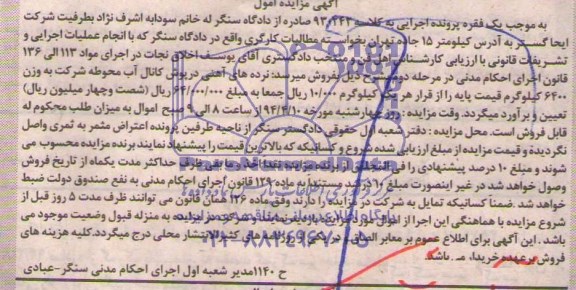 آگهی مزایده اموال
به موجب یک فقره پرونده اجرایی به کلاسه ۹۳۰۲۴۳ صادره از دادگاه سنگر له خانم سودابه اشرف نژاد بطرفیت شرکت
ایجا گستر به آدرس کیلومتر ۱۵ جاده تهران بخواسته مطالبات کارگری واقع در دادگاه سنگر که با انجام عملیات اجرایی و
تشریفات قانونی با ارزیابی کارشناس منتخب دادگستری آقای یوسف نجات در اجرای مواد ۱۱۳ الی ۱۳۶
قانون اجرای احکام مدنی در مرحله دوم بشرح ذیل بفروش میرسد: نرده های آهنی درپوش کانال آب محوطه شرکت به وزن
۶۴۰۰ کیلوگرم قیمت پایه را از قرار هر کیلوگرم ۱۰/۰۰۰ ریال جمعا به مبلغ ۶۴/۰۰۰/۰۰۰ ریال (شصت وچهار میلیون ریال)
تعیین و برآورد میگردد. وقت مزایده: روز چهارشنبه مورخه ۹۴/۴/۱۰ از ساعت ۸ الی ۹ صبح اموال به میزان طلب محکوم له
قابل فروش است. محل مزایده: دفتر شعبه اول حقوقی دادگستر سنگر از ناحیه طرفین پرونده اعتراض مثمر به ثمری واصل
نگردیده و قیمت مزایده از مبلغ ارزیابی شده شروع و کسانیکه که بالاترین قیمت را پیشنهاد نمایند برنده مزایده محسوب می
شوند و مبلغ ۱۰ درصد پیشنهادی را فی المجلس از برنده مزایده نقدا اخذ و ما بقی ظرف حداکثر مدت یکماه از تاریخ فروش
وصول خواهد شد در غیر اینصورت مبلغ ۱۰ درصد مستندا به ماده ۱۲۹ قانون اجرای احکام مدنی به نفع صندوق دولت ضبط
خواهد شد. ضمنا کسانیکه تمایل به شرکت در مزایده را دارند وفق ماده ۱۲۶ همان قانون می توانند ظرف مدت ۵ روز قبل از
شروع مزایده با هماهنگی این اجرا از اموال مورد مزایده بازدید نمایند و شرکت در مزایده به منزله قبول وضعیت موجود می
باشد. این آگهی برای اطلاع عموم بر معابر الصاق و در یکی از روزنامه های کثیرالانتشار محلی درج میگردد. کلیه هزینه های
فروش برعهده خریدار می باشد.
ح ۱۱۴۰ مدیر شعبه اول اجرای احکام مدنی سنگر-عبادی
۰۲۱-۸۸۳۴۹۶۷۰